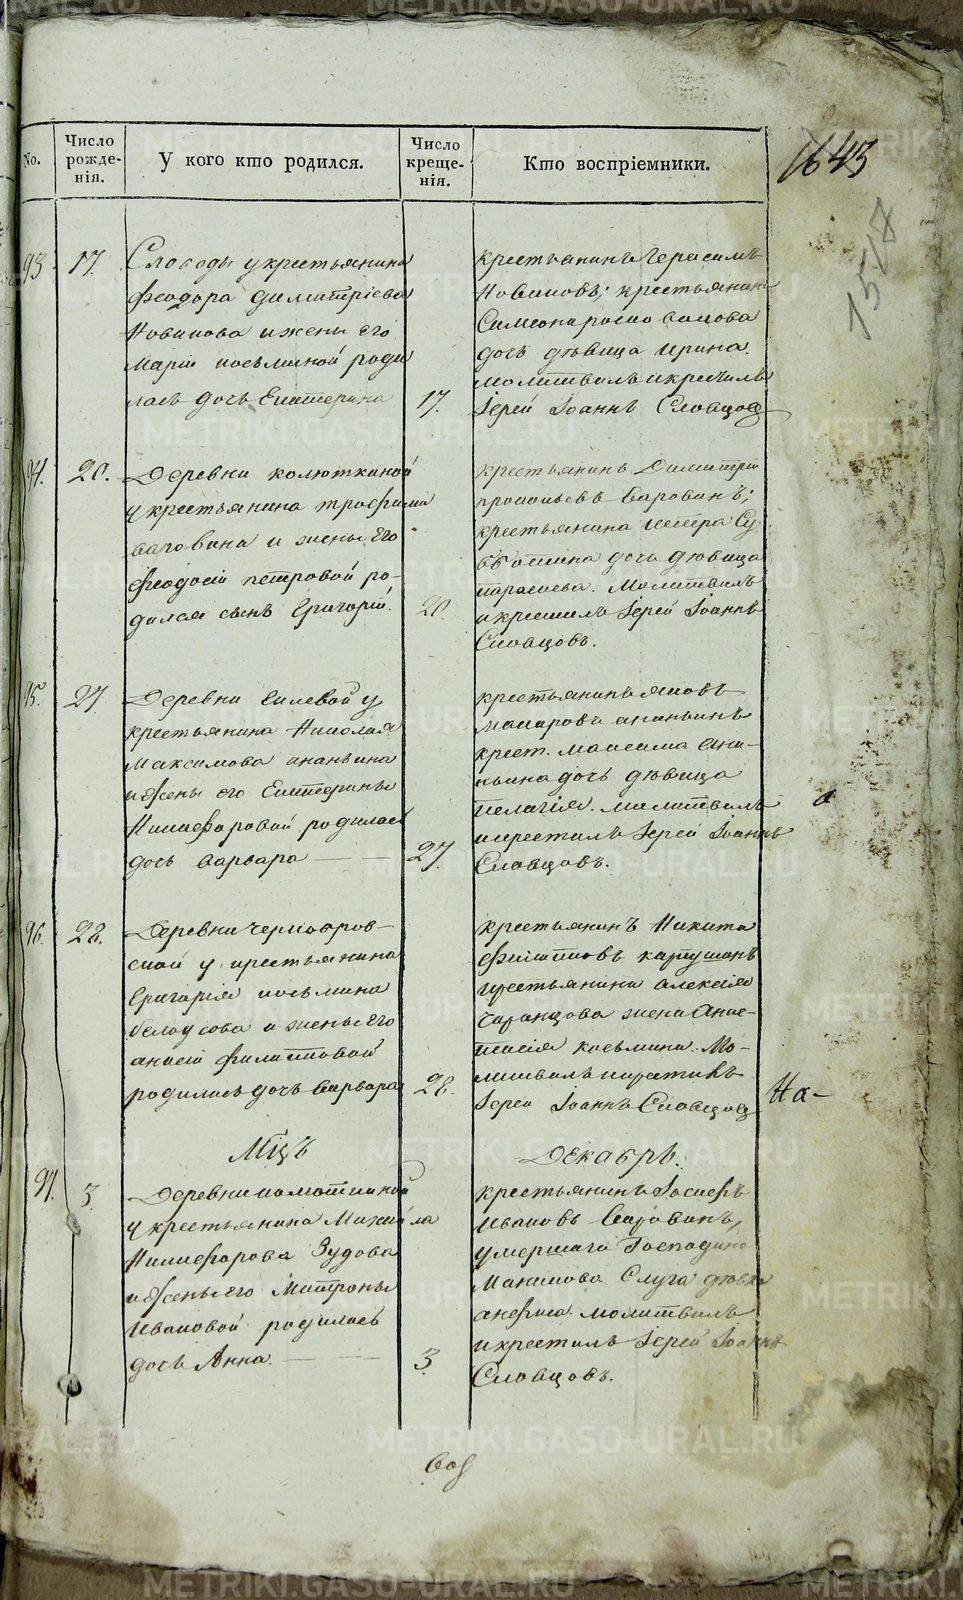 METRIKI.GASO-URAL.RU
No.
Число рожде-нія.
У кого кто родился.
Число креще-нія.
Кто воспріемники.
1643
1518
93
17
Слободы у крестьянина
Феодора Димитріева
Новикова и жены его
Маріи косьминой роди
лась дочь Екатерина
17.
крестьянинъ Герасимъ
Новиковъ; крестьянина
Симеона
дочь дѣвица Ирина.
молитвилъ и крестилъ
Іерей Іоаннъ Словцовъ
94.
20.
Деревни колюткиной
у крестьянина трофима
варовина и жены его
Феодосіи петровой ро-
дился сынъ Григорій.
20.
крестьянинъ Димитрій
прокопьевъ Варовинъ;
крестьянина петра Су
дочь дѣвица
параскева. Молитвилъ
и крестилъ Іерей Іоаннъ
Словцовъ.
95.
27.
Деревни Гилевой у
крестьянина Николая
Максимова ананьина
и жены его Екатерины
Никифоровой родилась
дочь варвара
27.
крестьянинъ яковъ
макаровъ ананьинъ
крест. максима Ана-
ньина дочь дѣвица
пелагія. молитвилъ
и крестилъ Іерей Іоаннъ
Словцовъ.
96.
28.
Деревни
ской у крестьянина
Григорія косьмина
белоусова и жены его
филиповой
родилась дочь Варвара
28.
крестьянинъ Никита
филиповъ
крестьянина алексія
жена Анас-
тасія косьмина. Мо-
литвилъ и крестилъ
Іерей Іоаннъ Словцовъ
На-
Мцъ
Декабрь.
97.
3.
Деревни
у крестьянина Михайла
Никифорова Зудова
и жены его Матроны
Ивановой родилась
дочь Анна.
3.
крестьянинъ Іосифъ
Ивановъ Варовинъ,
умершаго Господина
Слуга дѣвка
анфиса. молитвилъ
и крестилъ Іерей Іоаннъ
Словцовъ.